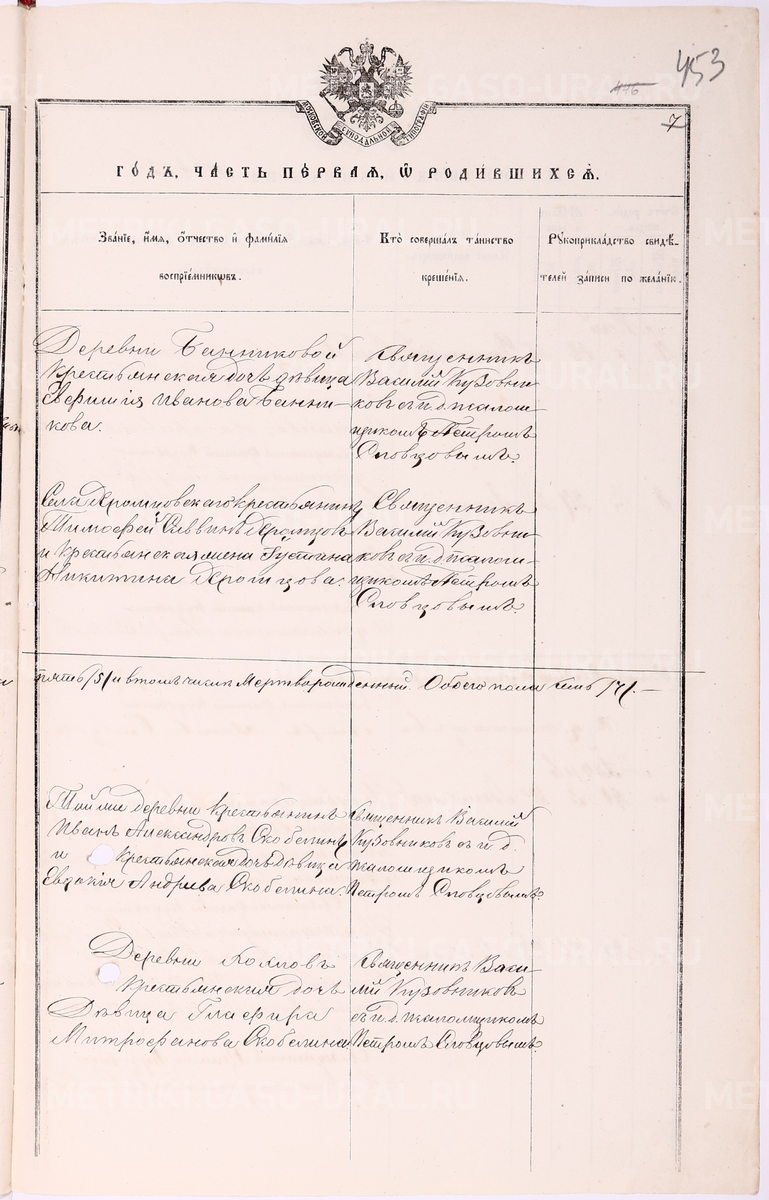 453
446
7
МОСКОВСКОЙ СѴНОДАЛЬНОЙ ТИПОГРАФІИ
ГОДЪ, ЧАСТЬ ПЕРВАЯ, Ѡ РОДИВШИХСЯ.
Званіе, имя, отчество и фамилія
воспріемниковъ.
Кто совершалъ таинство
крещенія.
Рукоприкладство свидѣ-
телей записи по желанію.
Деревни Банниковой
крестьянская дочь девица
Иванова Банни-
кова.
Священникъ
Василій Кузовни-
ковъ съ и. д. псалом-
щикомъ Петромъ
Словцовымъ.
Села крестьянинъ
Тимофей Саввинъ
и крестьянская жена Устинья
Никитина
Священникъ
Василій Кузовни-
ковъ съ и. д. псалом-
щикомъ Петромъ
Словцовымъ.
пять /5/ и в томъ числѣ мертворожденный. Обоего пола семь /7/. —
Той же деревни крестьянинъ
Иванъ Александровъ Скобелинъ
и крестьянская дочь девица
Евдокія Андреева Скобелина.
Священникъ Василій
Кузовниковъ съ и. д.
псаломщикомъ
Петромъ Словцовымъ.
Деревни
крестьянская дочь
девица Глафира
Митрофанова Скобелина
Священникъ Васи-
лій Кузовниковъ
съ и. д. псаломщикомъ
Петромъ Словцовымъ.